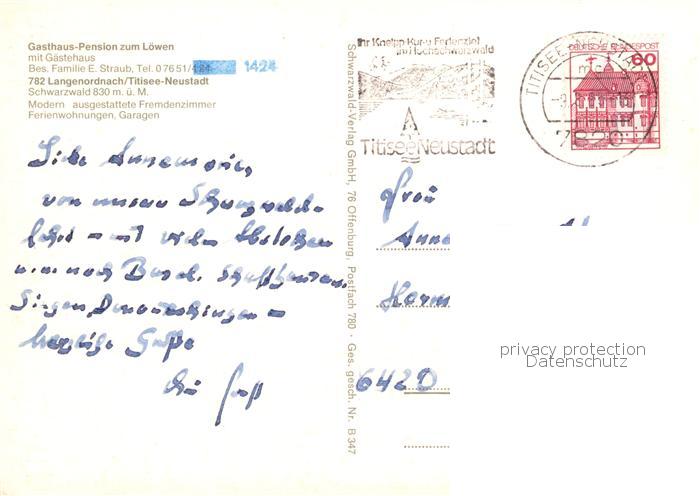 Gasthaus-Pension zum Löwen
mit Gästehaus
Bes. Familie E. Straub, Tel. 07651/424 1424
782 Langenordnach/Titisee-Neustadt
Schwarzwald 830 m. ü. M.
Modern ausgestattete Fremdenzimmer
Ferienwohnungen, Garagen
Liebe Annemarie,
von unserer
fahrt - mit vielen
nach Basel, Schaffhausen,
Singen, Donaueschingen -
herzliche Grüße
Schwarzwald-Verlag GmbH, 76 Offenburg, Postfach 780 · Ges. gesch. Nr. B 347
Ihr Kneipp-Kur-u Ferienziel
im Hochschwarzwald
Titisee Neustadt
TITISEE-NEUSTADT
7820
DEUTSCHE BUNDESPOST
60
Frau
Anne
Herm
6420
privacy protection
Datenschutz